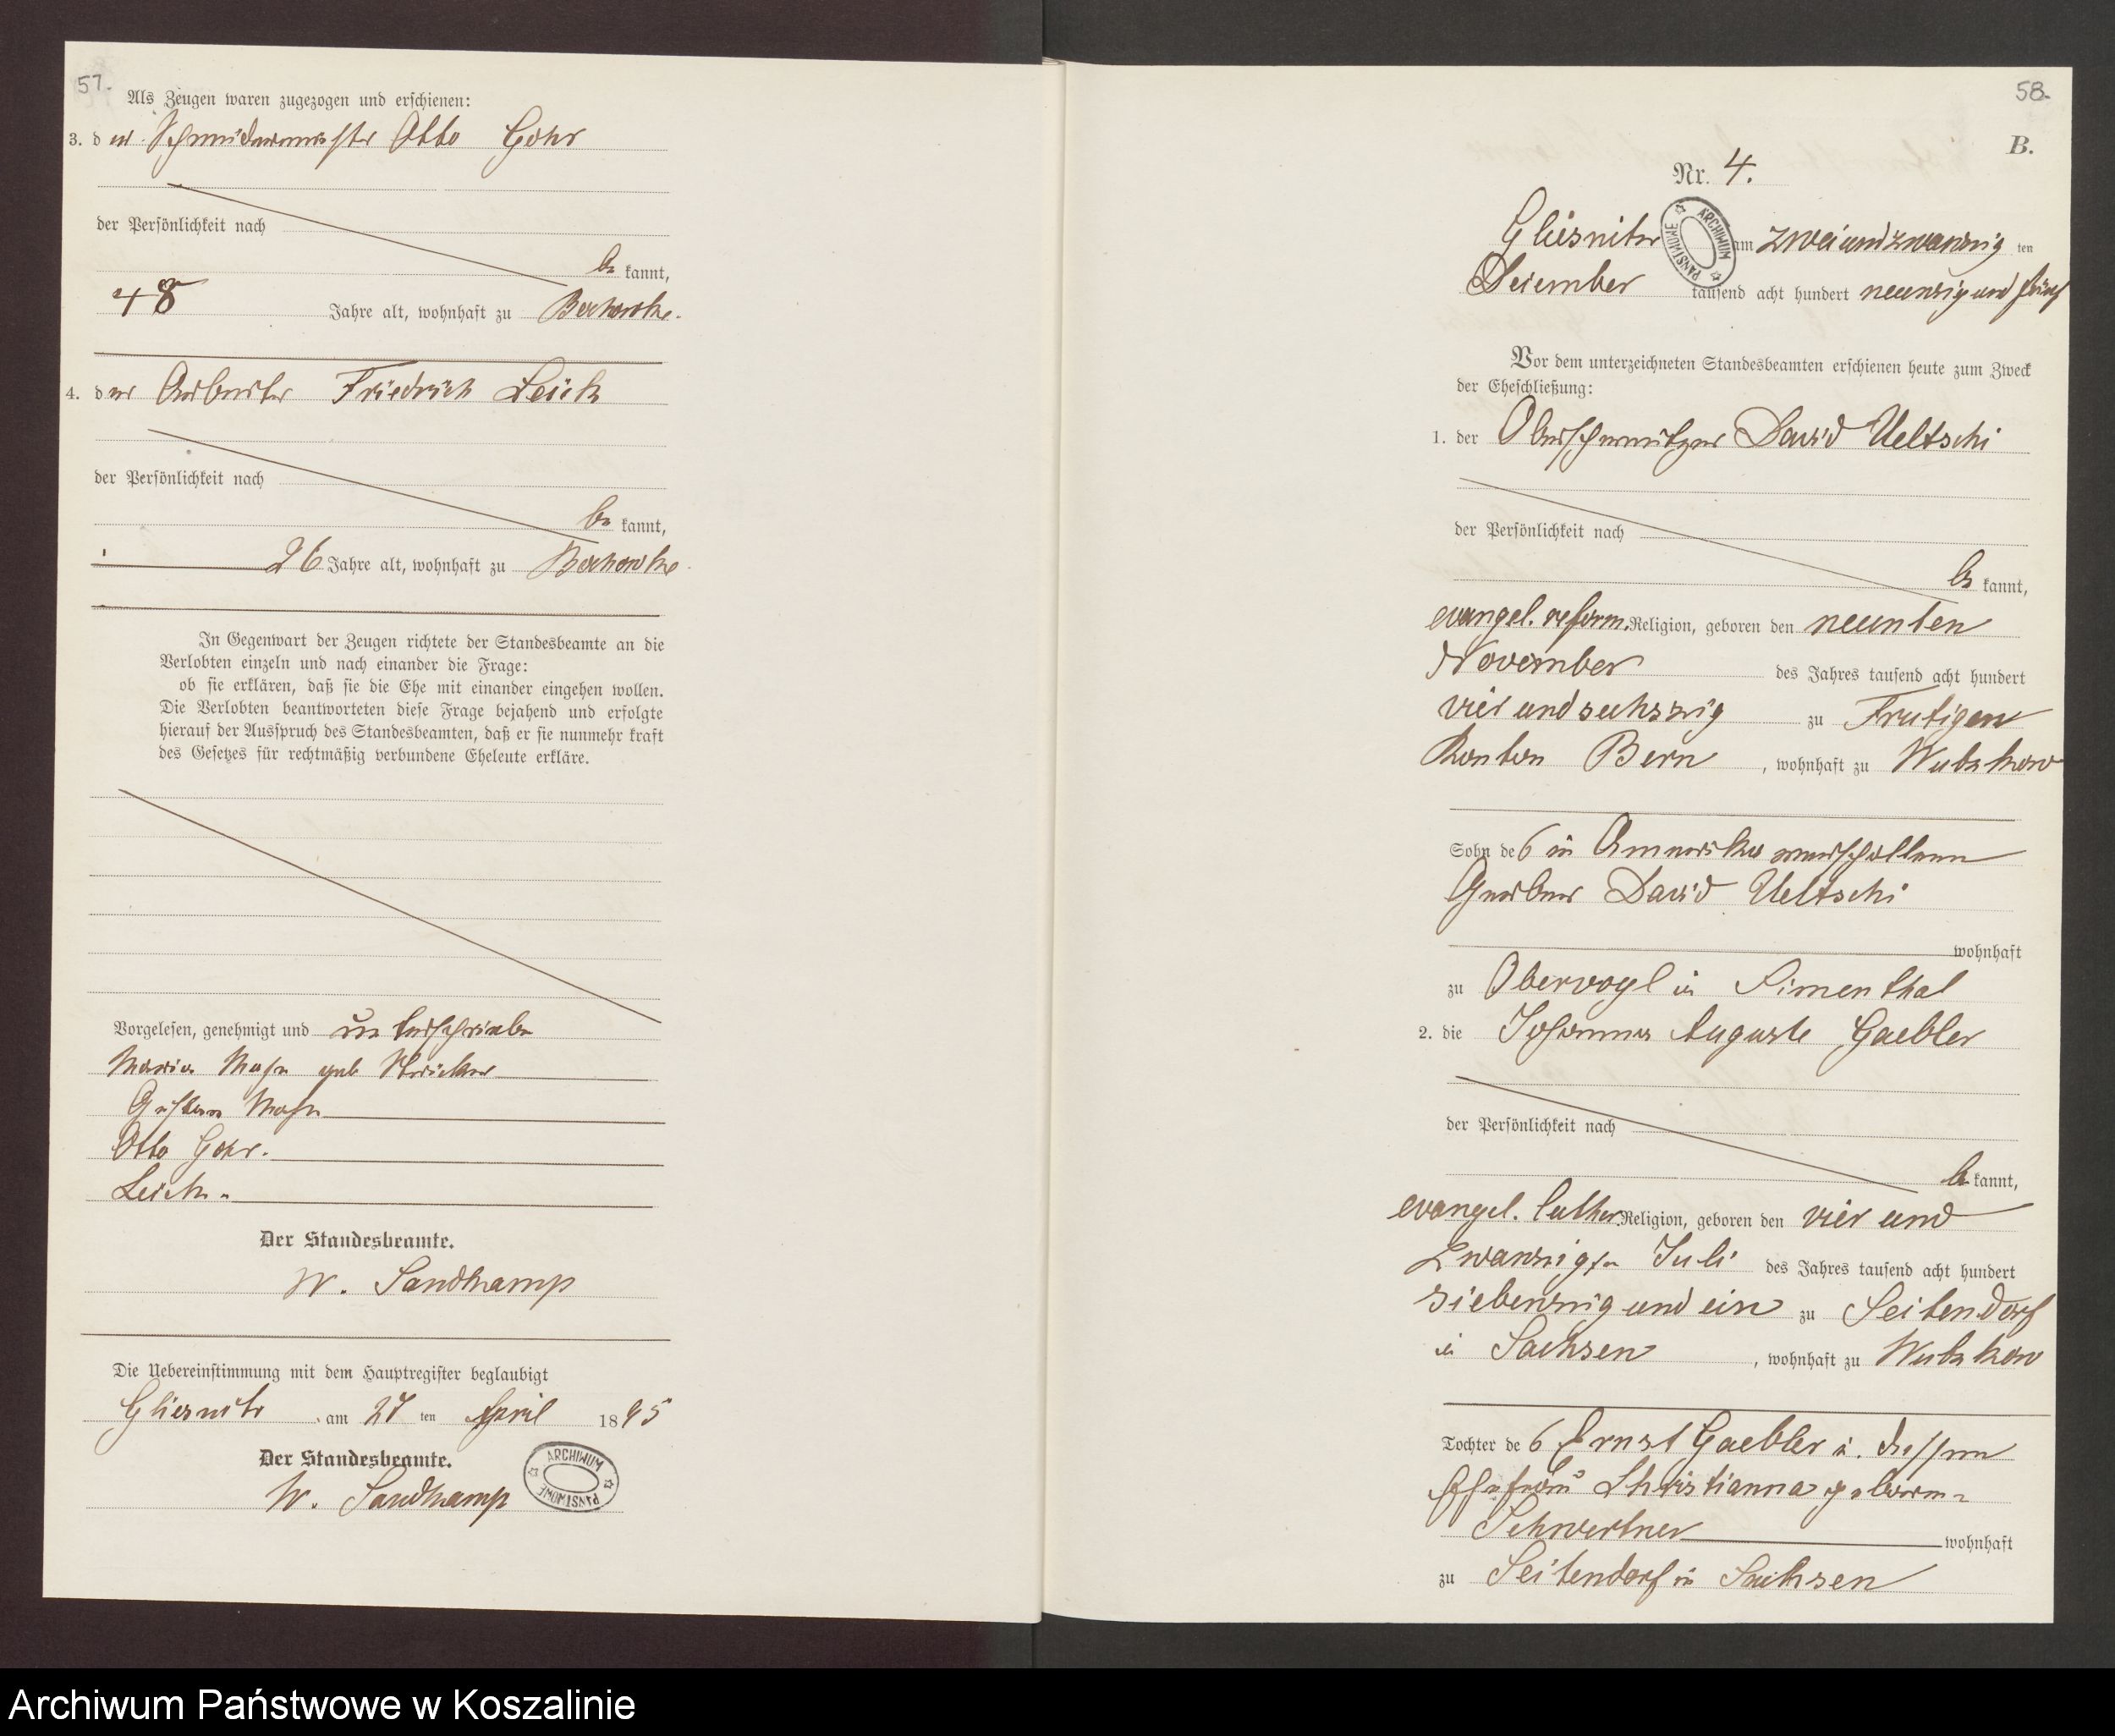 57.
Als Zeugen waren zugezogen und erschienen:
3. der Schmiedemeister Otto Gohr
der Persönlichkeit nach
be kannt,
48 Jahre alt, wohnhaft zu
4. der Arbeiter Friedrich Leick
der Persönlichkeit nach
be kannt,
26 Jahre alt, wohnhaft zu
In Gegenwart der Zeugen richtete der Standesbeamte an die
Verlobten einzeln und nach einander die Frage:
ob sie erklären, daß sie die Ehe mit einander eingehen wollen.
Die Verlobten beantworteten diese Frage bejahend und erfolgte
hierauf der Ausspruch des Standesbeamten, daß er sie nunmehr kraft
des Gesetzes für rechtmäßig verbundene Eheleute erkläre.
Vorgelesen, genehmigt und unterschrieben
Maria geb
Gustav
Otto Gohr.
Leick.
Der Standesbeamte.
W. Sandkamp
Die Uebereinstimmung mit dem Hauptregister beglaubigt
Gliesnitz, am 27 ten April 1895
Der Standesbeamte.
W. Sandkamp
ARCHIWUM PAŃSTWOWE
58.
B.
Nr. 4.
Gliesnitz am zweiundzwanzig ten
ARCHIWUM PAŃSTWOWE
Dezember tausend acht hundert neunzig und fünf
Vor dem unterzeichneten Standesbeamten erschienen heute zum Zweck
der Eheschließung:
1. der Oberschweitzer David Ueltschi
der Persönlichkeit nach
be kannt,
evangel. reform. Religion, geboren den neunten
November des Jahres tausend acht hundert
vier und sechszig zu Frutigen
Kanton Bern, wohnhaft zu Wutzkow
Sohn des in Amerika verschollenen
Gerber David Ueltschi
wohnhaft
zu in Simenthal
2. die Johanna Auguste Gaebler
der Persönlichkeit nach
be kannt,
evangel. luther. Religion, geboren den vier und
zwanzigsten Juli des Jahres tausend acht hundert
siebenzig und ein zu Seitendorf
in Sachsen, wohnhaft zu Wutzkow
Tochter des Ernst Gaebler u. dessen
Ehefrau Christianna geborene
Schwertner wohnhaft
zu Seitendorf in Sachsen
Archiwum Państwowe w Koszalinie